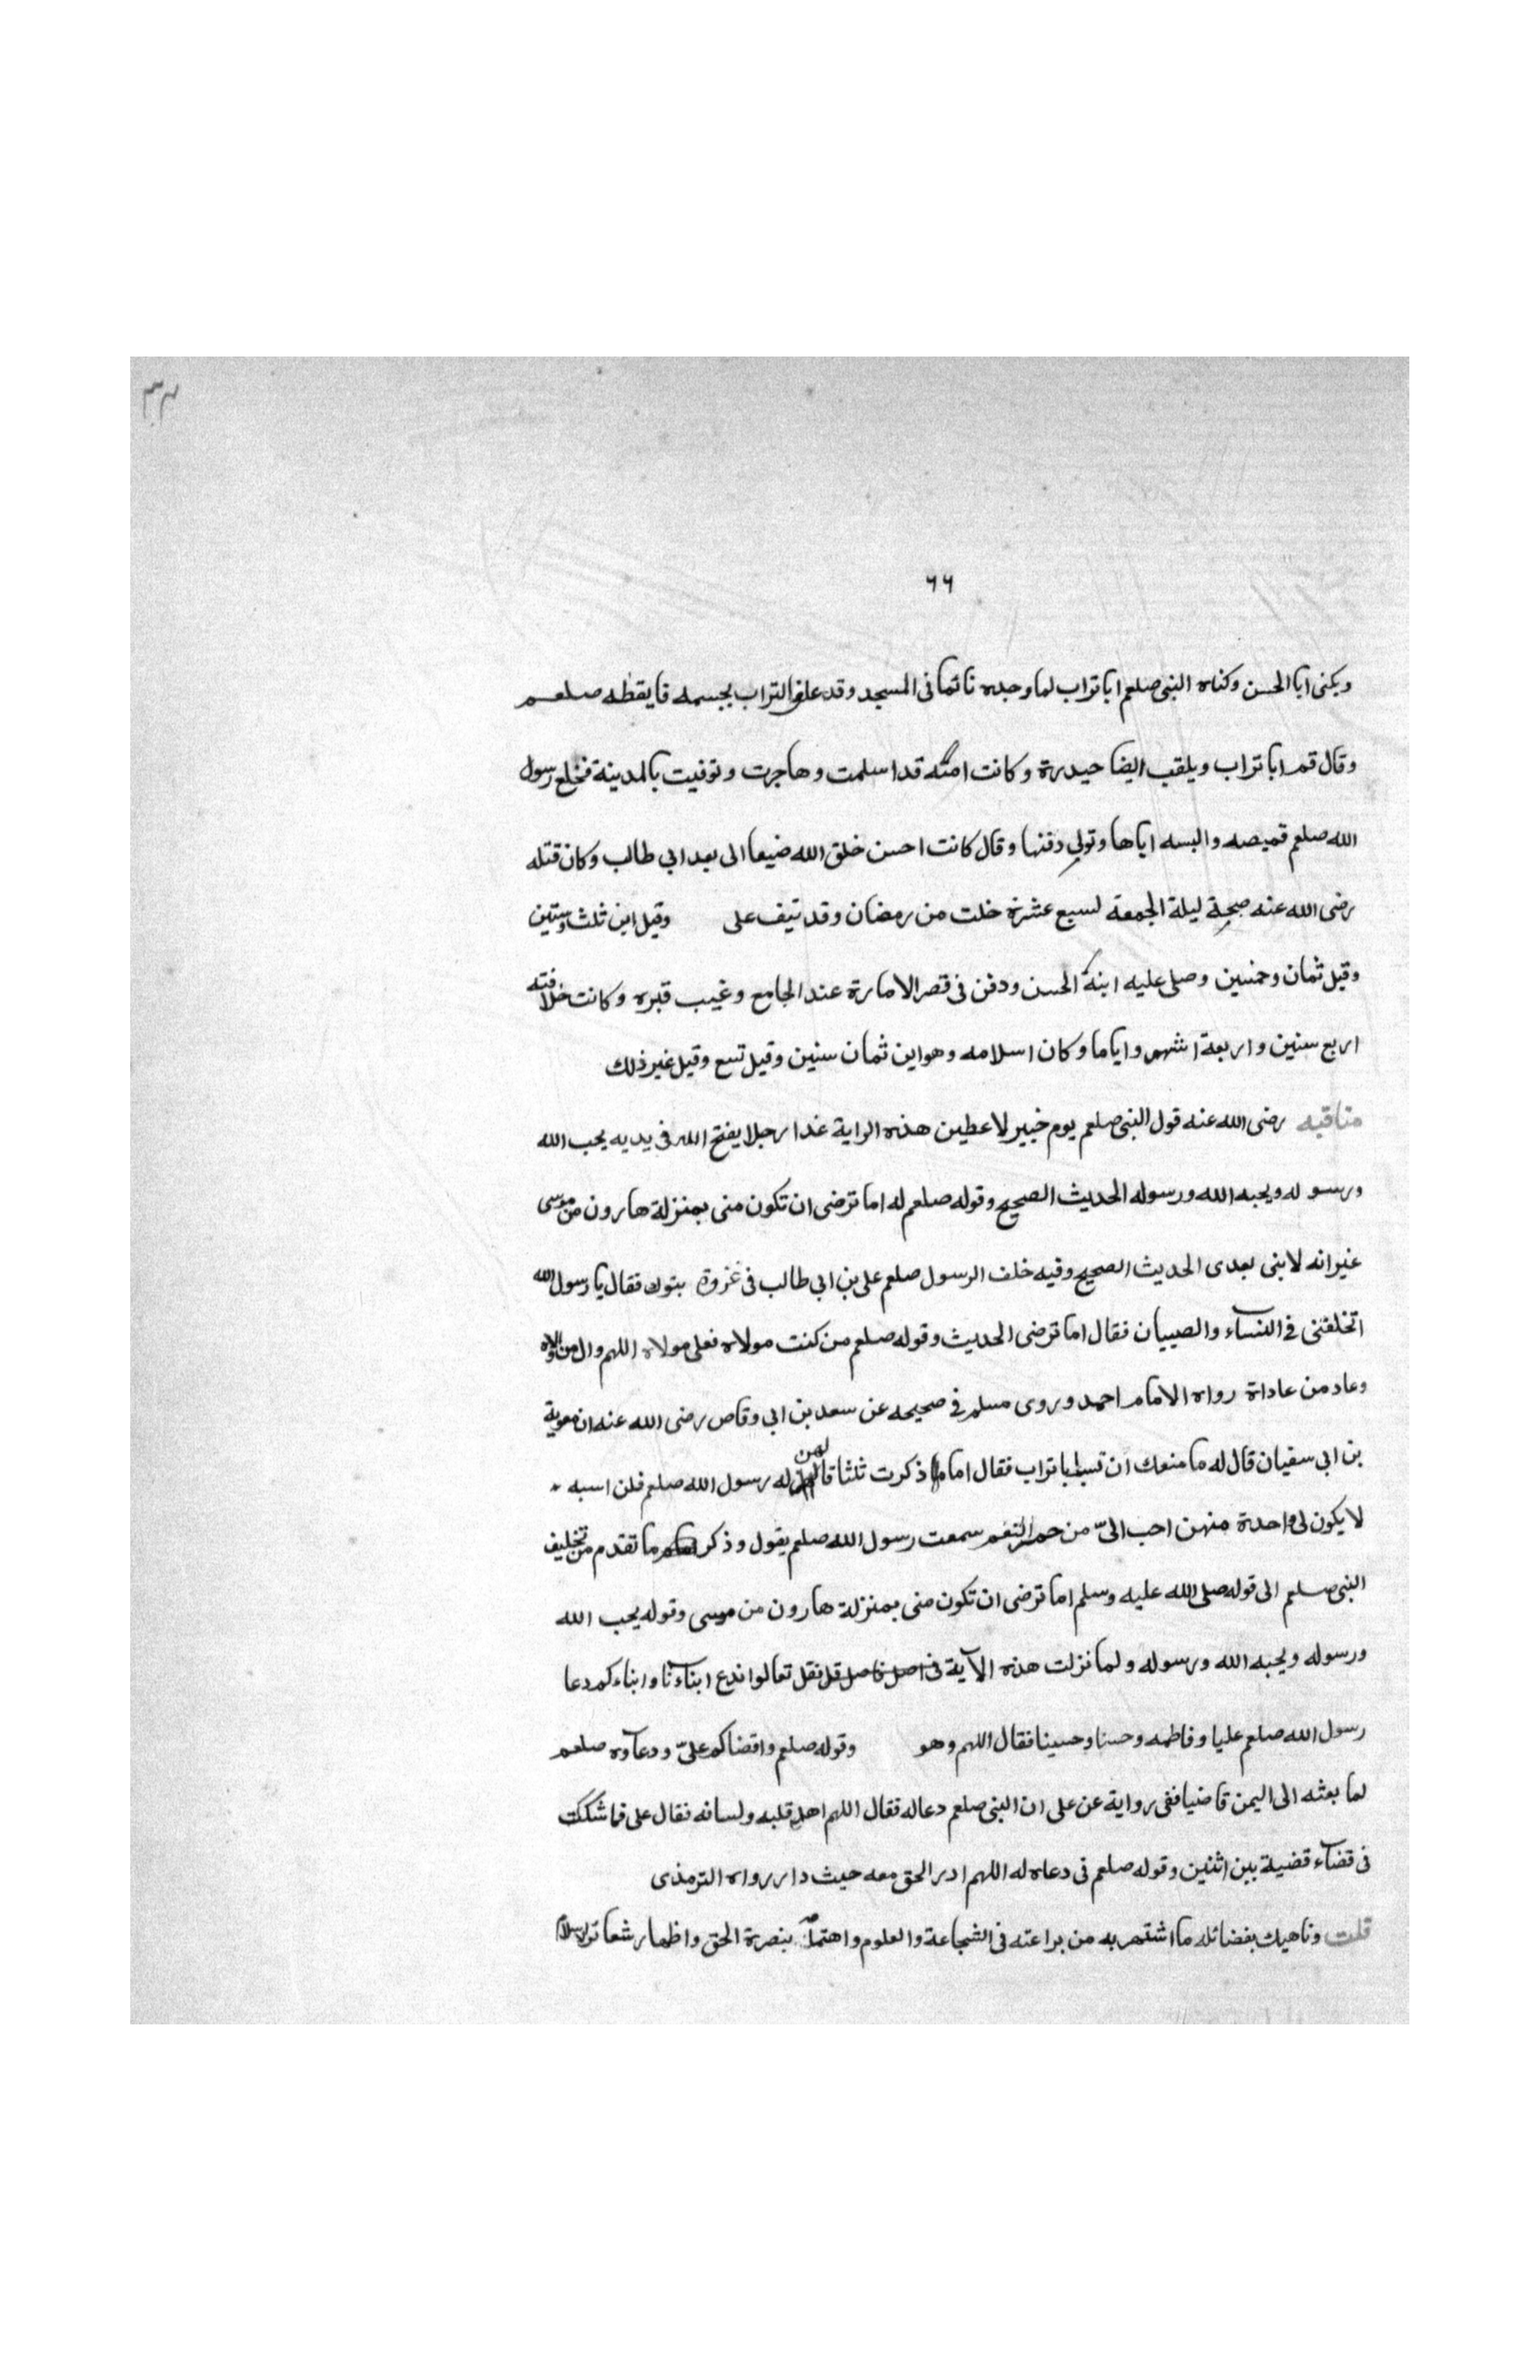 ٣٣
٦٦
ويكنى ابا الحسن وكناه النبى صلعم ابا تراب لما وجده نائما فى المسجد وقد علق التراب بجسمه فايقظه صلعم
وقال قم ابا تراب ويلقب ايضا حيدرة وكانت امه قد اسلمت وهاجرت وتوفيت بالمدينة فخلع رسول
الله صلعم قميصه والبسه اياها وتولى دفنها وقال كانت احسن خلق الله ضيعا الى بعد ابي طالب وكان قتله
رضى الله عنه صبحة ليلة الجمعة لسبع عشرة خلت من رمضان وقد نيف على وقيل ابن ثلث وستين
وقيل ثمان وخمسين وصلى عليه ابنه الحسن ودفن فى قصر الامارة عند الجامع وغيب قبره وكانت خلافته
اربع سنين واربعة اشهر واياما وكان اسلامه وهو ابن ثمان سنين وقيل تسع وقيل غير ذلك
مناقبه رضى الله عنه قول النبى صلعم يوم خيبر لاعطين هذه الراية غدا رجلا يفتح الله فى يديه يحب الله
ورسوله ويحبه الله ورسوله الحديث الصحيح وقوله صلعم له اما ترضى ان تكون منى بمنزلة هارون من موسى
غير انه لا نبى بعدى الحديث الصحيح وفيه خلف الرسول صلعم على بن ابي طالب فى غزوة بتوك فقال يا رسول الله
اتخلفنى فى النساء والصبيان فقال اما ترضى الحديث وقوله صلعم من كنت مولاه فعلى مولاه اللهم وال من والاه
وعاد من عاداة رواه الامام احمد وروى مسلم فى صحيحه عن سعد بن ابي وقاص رضى الله عنه ان معوية
بن ابى سفيان قال له ما منعك ان تسب ابا تراب فقال اما ما ذكرت ثلثا قالهن له رسول الله صلعم فلن اسبه
لا يكون لى واحدة منهن احب الىّ من حمر النعم سمعت رسول الله صلعم يقول وذكر ما تقدم من تخليف
النبى صلعم الى قوله صلى الله عليه وسلم اما ترضى ان تكون منى بمنزلة هارون من موسى وقوله يحب الله
ورسوله ويحبه الله ورسوله ولما نزلت هذه الآية فقل تعالوا ندع ابناءنا وابناءكم دعا
رسول الله صلعم عليا وفاطمه وحسنا وحسينا فقال اللهم وهو وقوله صلعم واقضاكم علىّ ودعاوه صلعم
لما بعثه الى اليمن قاضيا ففى رواية عن على ان النبى صلعم دعا له فقال اللهم اهد قلبه ولسانه فقال على فما شككت
فى قضاء قضية بين اثنين وقوله صلعم فى دعاه له اللهم ادر الحق معه حيث دار رواه الترمذى
قلت وناهيك بفضائله ما اشتهر به من براعته فى الشجاعة والعلوم واهتمامه بنصرة الحق واظهار شعائر الاسلام